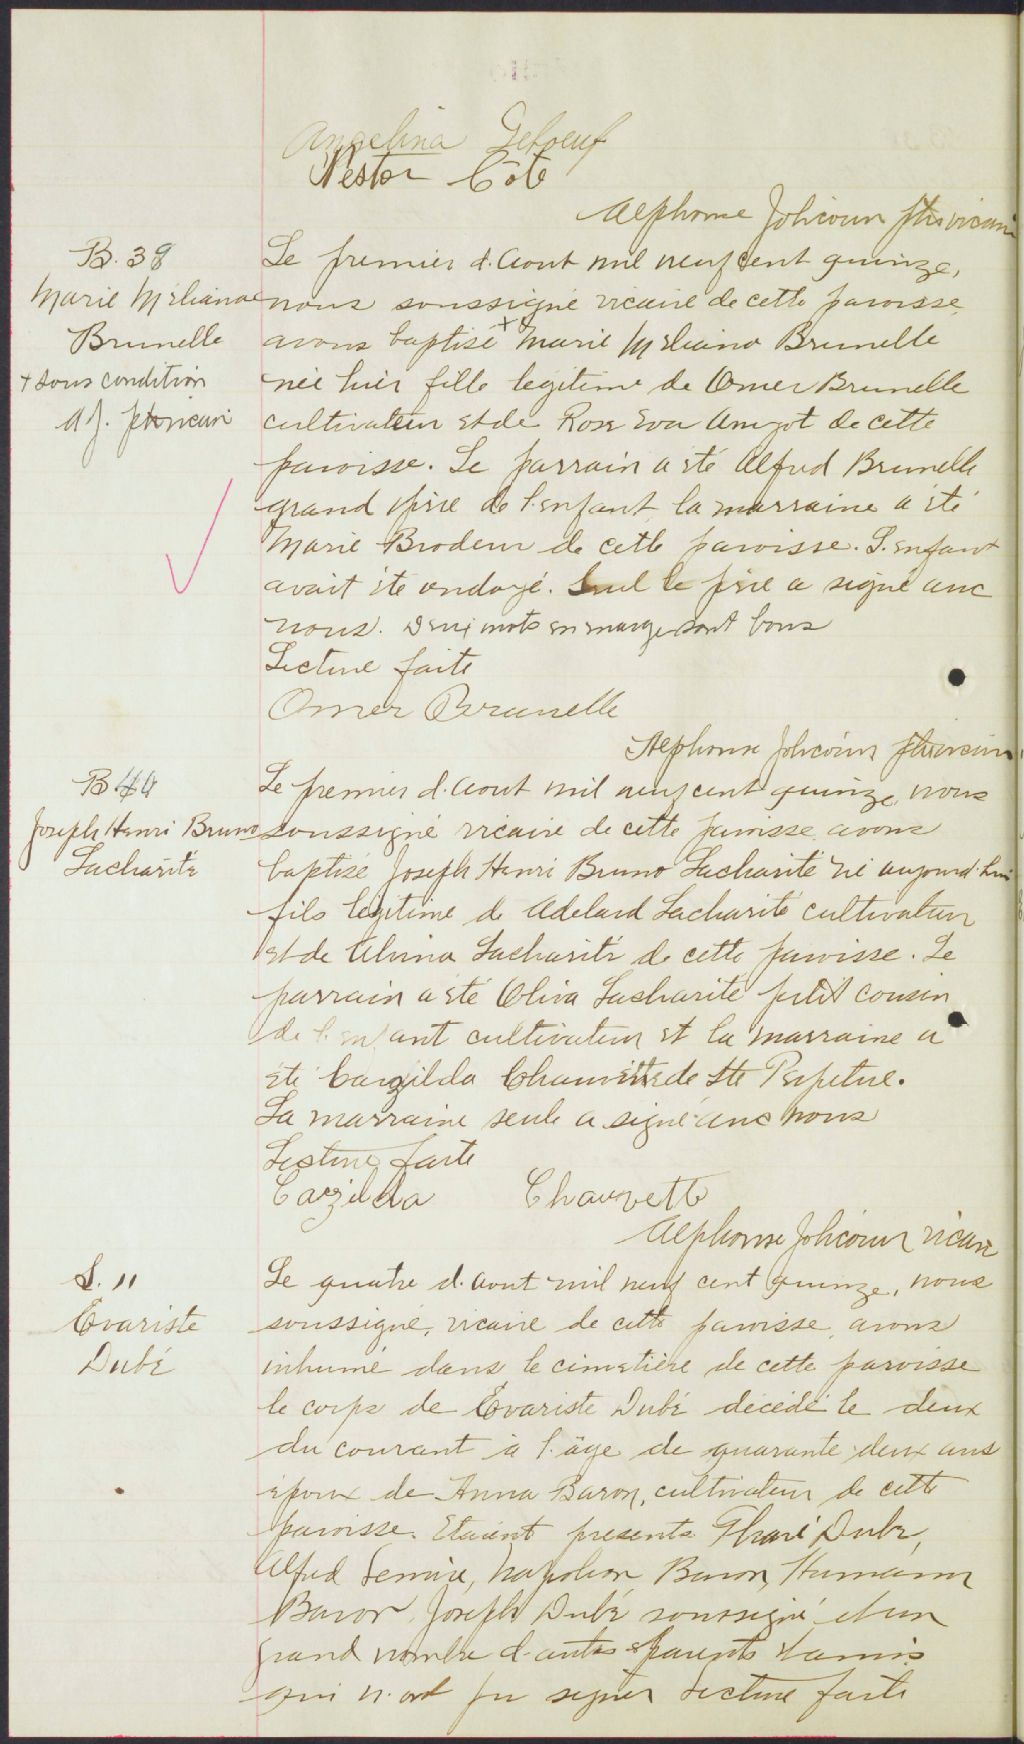 Angelina Leboeuf
Nestor Côté
Alphonse Jolicoeur ptre vicaire
B. 38
Marie Méliana
Brunelle
+ sous condition
A J. ptre vicaire
Le premier d'aout mil neuf cent quinze,
nous soussigné vicaire de cette paroisse,
avons baptisé + Marie Méliana Brunelle
née hier fille légitime de Omer Brunelle
cultivateur et de Rose Eva Amyot de cette
paroisse. Le parrain a été Alfred Brunelle
grand père de l'enfant la marraine a été
Marie Brodeur de cette paroisse. L'enfant
avait été ondoyé. Seul le père a signé avec
nous. Deux mots en marge sont bons
Lecture faite
Omer Brunelle
Alphonse Jolicoeur ptre vicaire
B 44
Joseph Henri Bruno
Lacharité
Le premier d'aout mil neuf cent quinze, nous
soussigné vicaire de cette paroisse avons
baptisé Joseph Henri Bruno Lacharité né aujourd'hui
fils légitime de Adelard Lacharité cultivateur
et de Alvina Lacharité de cette paroisse. Le
parrain a été Oliva Lacharité petit cousin
de l'enfant cultivateur et la marraine a
été Cazilda Chauvette de Ste Perpetue.
La marraine seule a signé avec nous
Lecture faite
Cazilda Chauvette
Alphonse Jolicoeur vicaire
S. 11
Evariste
Dubé
Le quatre d'aout mil neuf cent quinze, nous
soussigné, vicaire de cette paroisse, avons
inhumé dans le cimetière de cette paroisse
le corps de Evariste Dubé décédé le deux
du courant à l'âge de quarante deux ans
époux de Anna Baron, cultivateur de cette
paroisse. Etaient presents Dubé,
Alfred Lemire, Napoléon Baron,
Baron Joseph Dubé soussigné et un
grand nombre d'autres parents et amis
qui n'ont pu signer Lecture faite